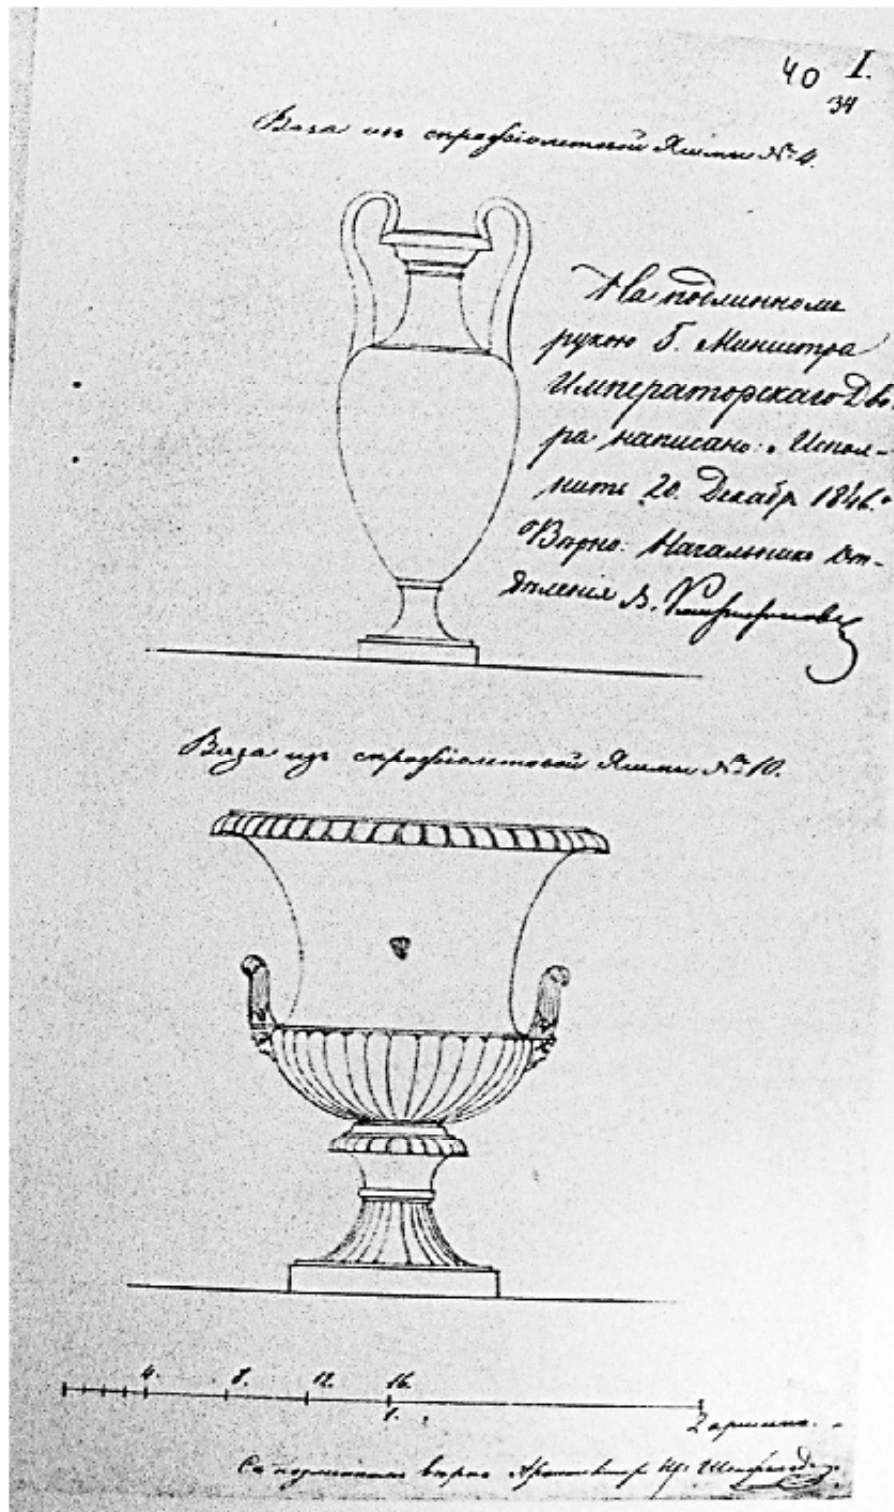 40 I.
34
Ваза изъ сѣрофіолетовой Яшмы № 4.
На подлинномъ
рукою Г. Министра
Императорскаго Дво
ра написано: „Испол-
нить 20. Декабр 1846.“
Вѣрно: Начальникъ От-
дѣленія В.
Ваза изъ сѣрофіолетовой Яшмы № 10.
4. 8. 12. 16.
1. 2 аршина.
Съ подлиннымъ вѣрно Архитекторъ